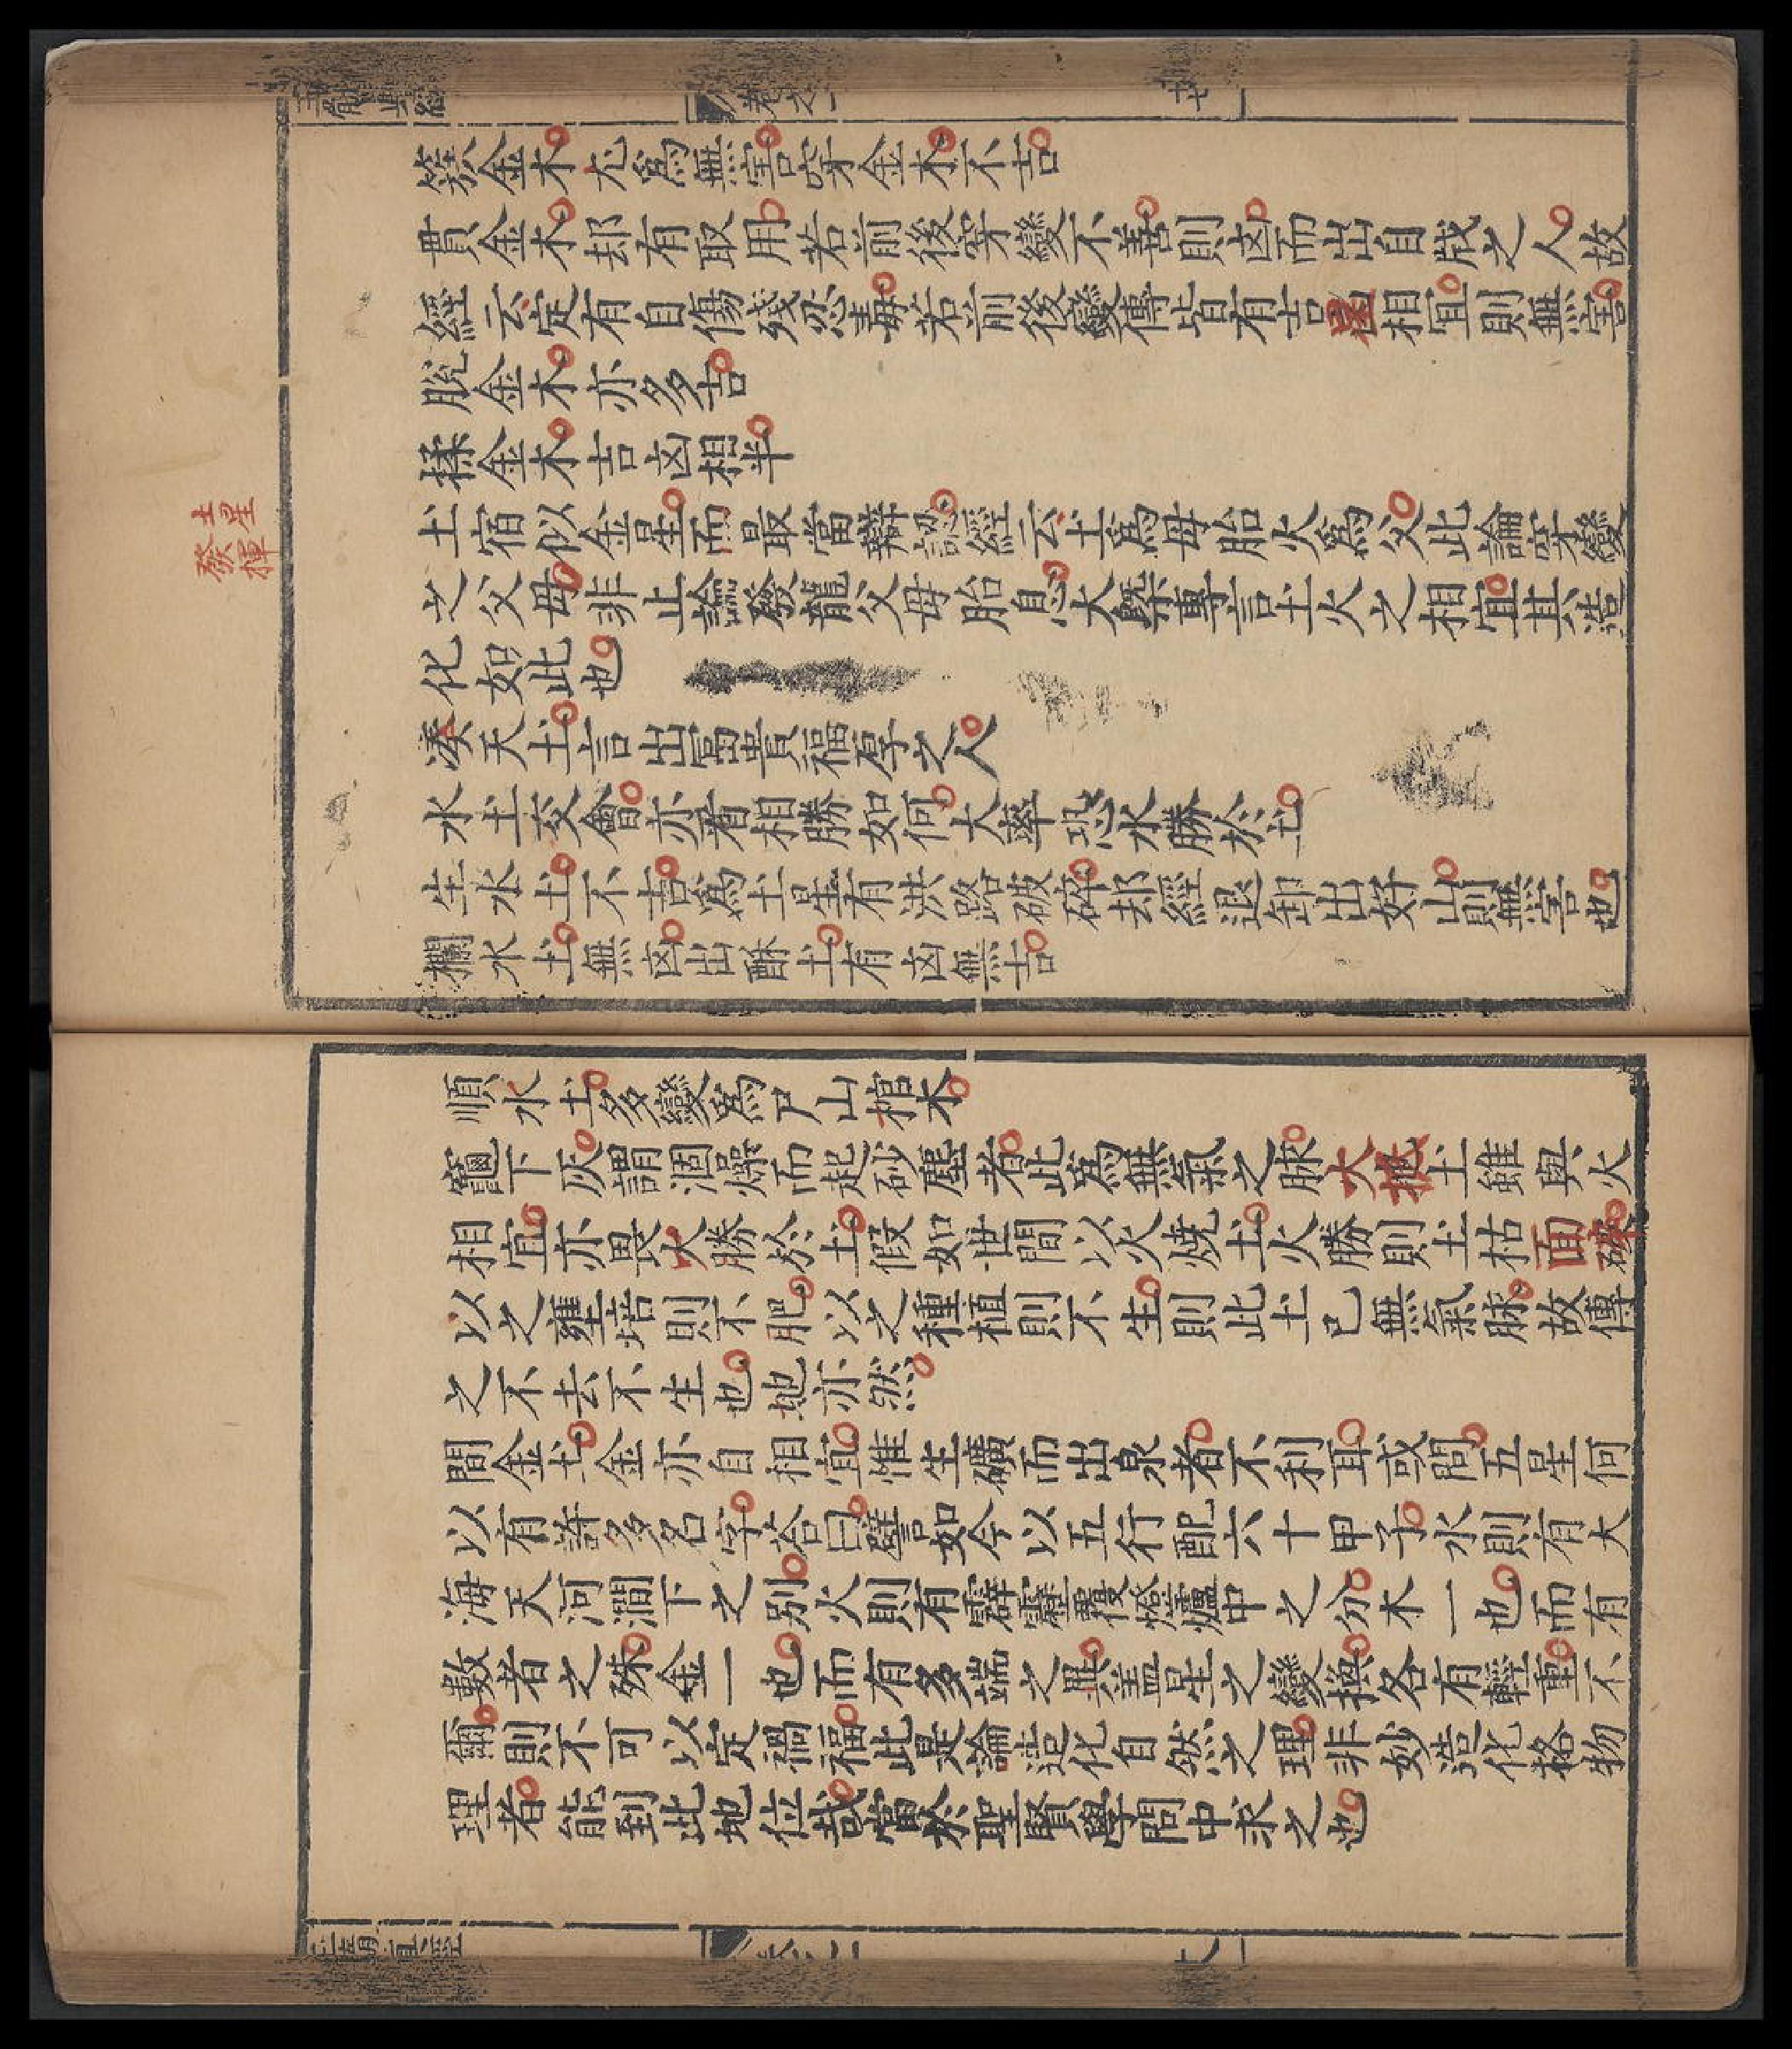 簇金木尤爲無害穿金木不吉
貫金木却有取用若前後穿變不善則凶而出自戕之人故
經云定有自傷殘忍毒若前後變傳皆有吉星相宜則無害
脫金木亦多吉
揉金木吉凶相半
土星
發揮
土宿似金星而最當辯認經云土爲母胎火爲父此論穿變
之父母非止論發龍父母胎息大槩專言土火之相宜其造
化如此也
湊天土言出富貴福厚之人
水土交會亦看相勝如何大率恐水勝於土
生水土不吉爲土星有洪路破碎却經退卸出好山則無害也
攔水土無凶出酥土有凶無吉
順水土多變爲尸山棺木
竈下灰謂涸燥而起砂塵者此爲無氣之脉大抵土雖與火
相宜亦畏火勝於土假如世間以火燒土火勝則土枯而碎
以之壅培則不肥以之種植則不生則此土已無氣脉故傳
之不去不生也地亦然
間金土金亦自相宜惟生礦而出泉者不利耳或問五星何
以有許多名字荅曰譬如今以五行配六十甲子水則有大
海天河澗下之别火則有霹靂覆燈爐中之分木一也而有
數者之殊金一也而有多端之異盖星之變換各有輕重不
爾則不可以定禍福此是論造化自然之理非妙造化格物
理者能到此地位哉當於聖賢學問中求之也